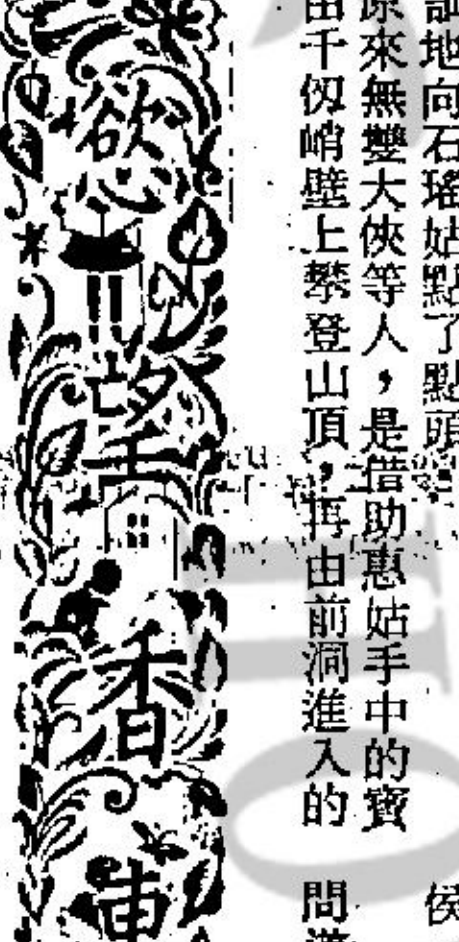 地向石瑤姑點了點頭
侯
原來無雙大俠等人，是借助惠姑手中的寶
由千仞峭壁上攀登山頂，再由前洞進入的
問
慾望香